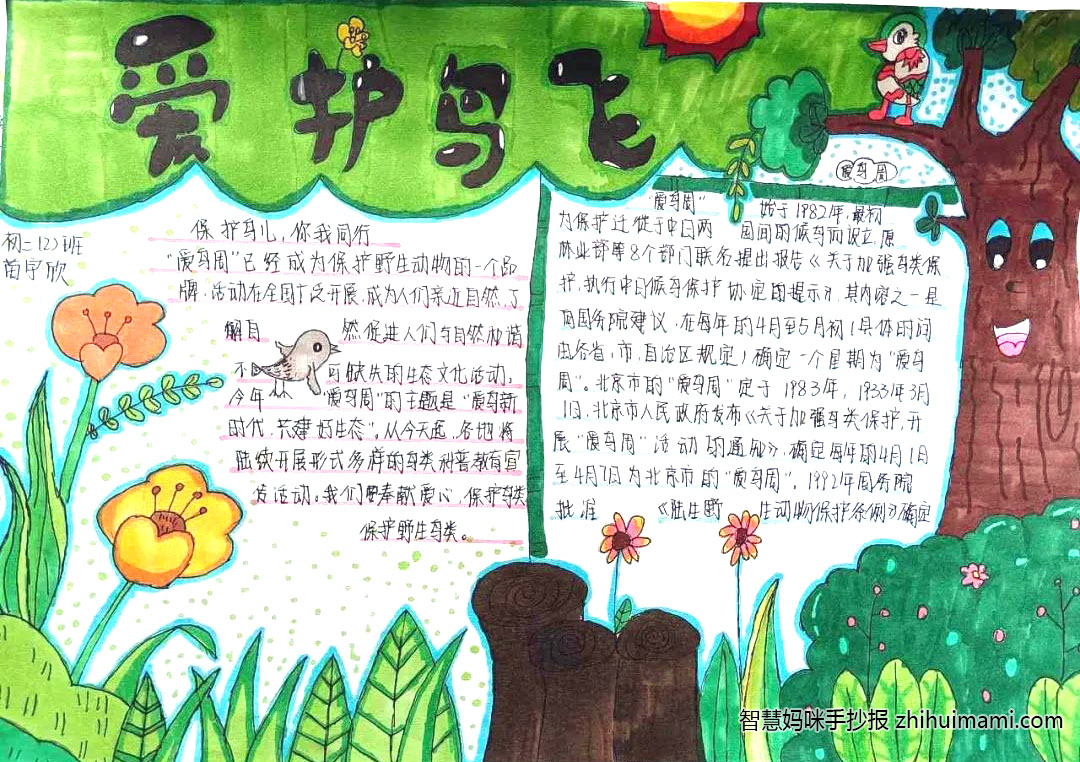 爱护鸟飞
初二12)班
苗宇欣
保护鸟儿,你我同行
“爱鸟周”已经成为保护野生动物的一个品
牌,活动在全国广泛开展,成为人们亲近自然,了
解自然促进人们与自然和谐
不可缺失的生态文化活动。
今年“爱鸟周”的主题是“爱鸟新
时代,共建好生态”。从今天起,各地将
陆续开展形式多样的鸟类科普教育宣
传活动。我们要奉献爱心,保护鸟类
保护野生鸟类。
爱鸟周
“爱鸟周”始于1982年,最初
为保护迁徙于中日两国间的候鸟而设立,原
林业部等8个部门联名提出报告《关于加强鸟类保
护,执行中日候鸟保护协定的提示》,其内容之一是
向国务院建议,在每年的4月至5月初(具体时间
由各省,市,自治区规定)确定一个星期为“爱鸟
周”。北京市的“爱鸟周”定于1983年,1933年3月
1日,北京市人民政府发布《关于加强鸟类保护,开
展“爱鸟周”活动的通知》,确定每年的4月1日
至4月7日为北京市的“爱鸟周”。1992年国务院
批准《陆生野生动物保护条例》确定
智慧妈咪手抄报 zhihuimami.com